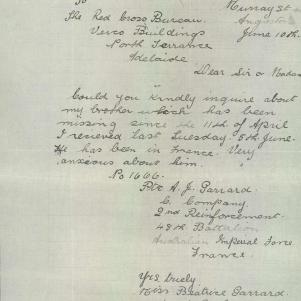 To
Murray St
The Red Cross Bureau.
Angaston
Verco Buildings
June 10th
North Terrance
Adelaide
Dear Sir or Madam
Could you kindly inquire about
my brother which has been
missing since the 11th of April
I recieved last Tuesday 5th June.
He has been in France. Very
anxious about him.
No 1666.
Pte A. J. Garrard.
C. Company.
2nd Reinforcement.
48th Battalion
Australian Imperial Force
France.
Yrs truely.
Miss Beatrice Garrard.